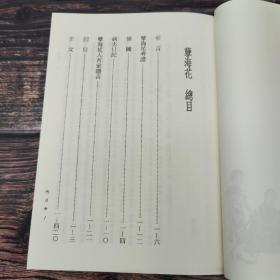 孽海花 總目
引言 一—六
孽海花考證 一—一二
插圖 一—四
病夫日記 一—一〇
孽海花人名索隱表 一—二一
回目 一—三
正文 一—四二〇
總目 1